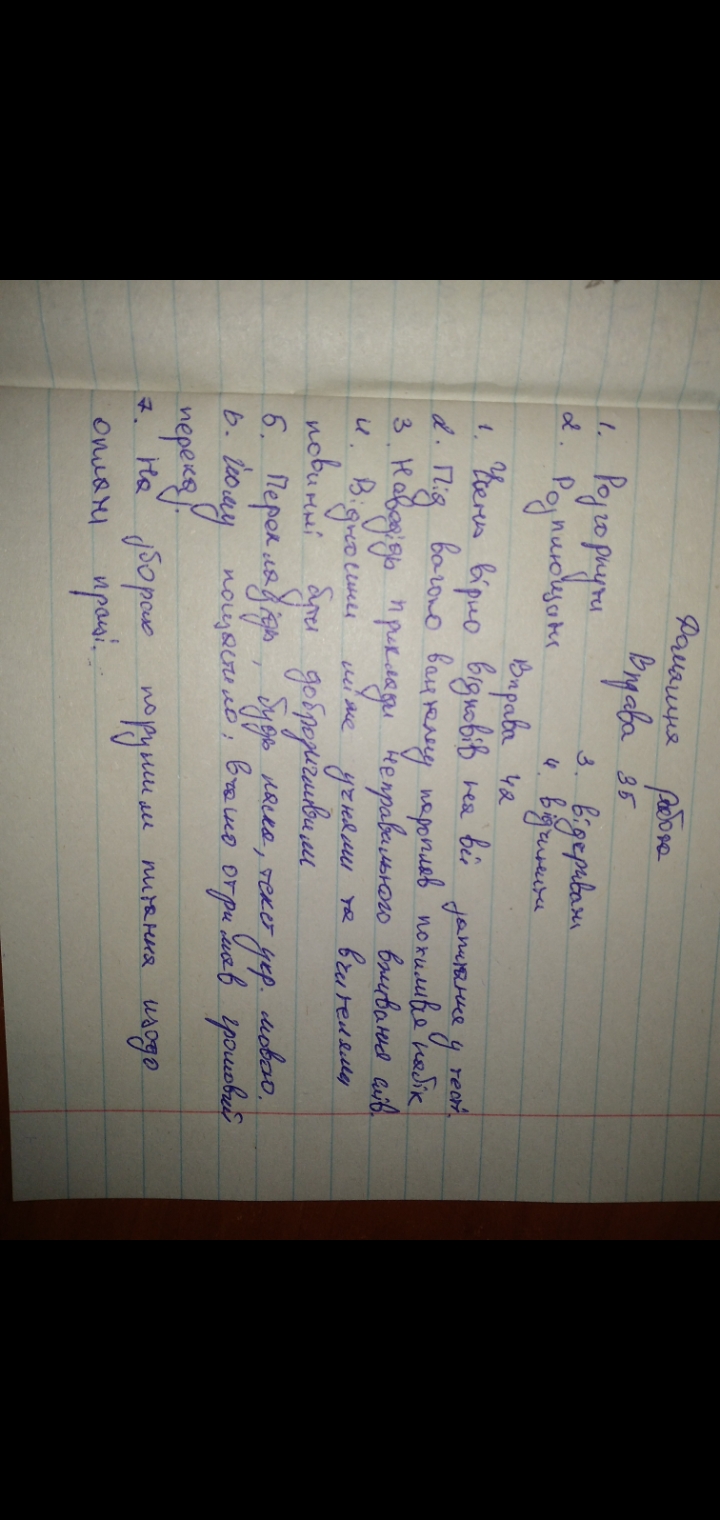 Домашня робота
Вправа 35
1. Розгорнути 3. відкривати
2. Розплющити 4. відчинити
Вправа 42
1. Учень вірно відповів на всі запитання у тесті.
2. Під вагою вантажу пароплав похилився набік
3. Наведіть приклади неправильного вживання слів.
4. Відносини між учнями та вчителями
повинні бути доброзичливими
5. Перекладіть, будь ласка, текст укр. мовою.
6. Йому пощастило; вчасно отримав грошовий
переказ.
7. На зборах порушили питання щодо
оплати праці.